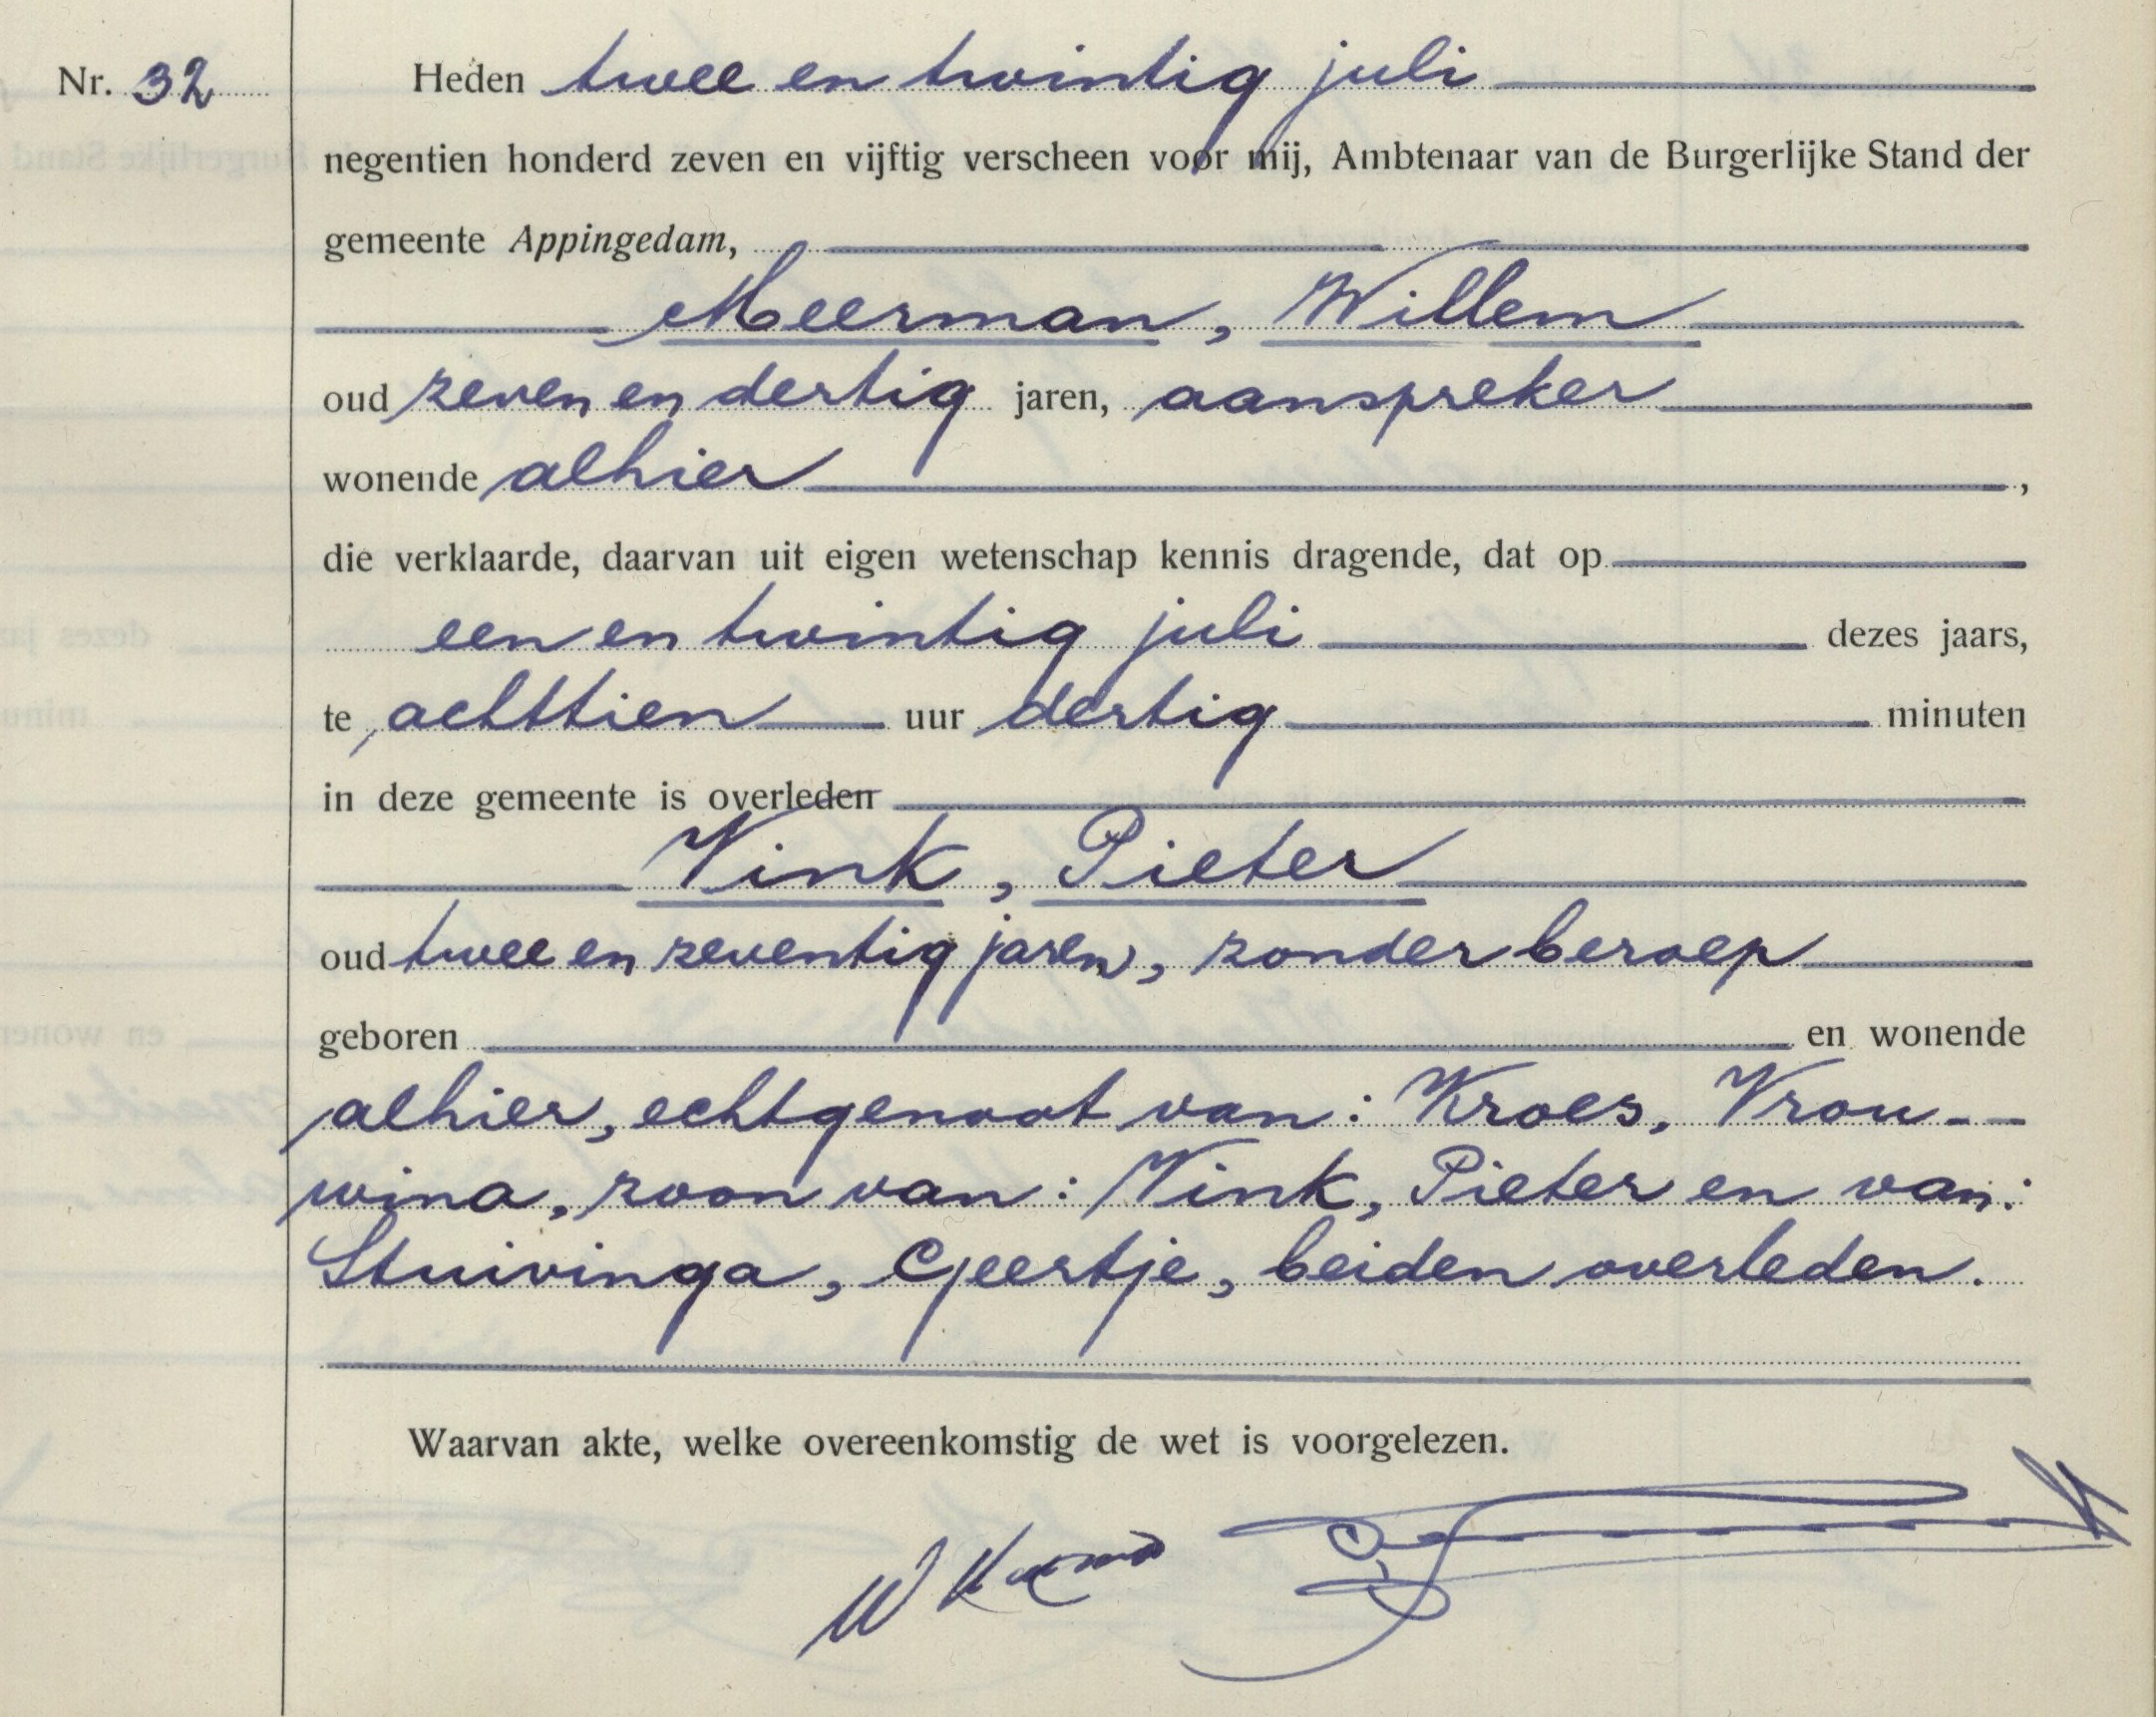 Nr. 32
Heden twee en twintig juli
negentien honderd zeven en vijftig verscheen voor mij, Ambtenaar van de Burgerlijke Stand der
gemeente Appingedam,
Meerman, Willem
oud zeven en dertig jaren, aanspreker
wonende alhier ,
die verklaarde, daarvan uit eigen wetenschap kennis dragende, dat op
een en twintig juli dezes jaars,
te achttien uur dertig minuten
in deze gemeente is overleden
Vink, Pieter
oud twee en zeventig jaren, zonder beroep
geboren en wonende
alhier, echtgenoot van: Kroes, Vrou--
wina, zoon van: Vink, Pieter en van:
Stuivinga, Geertje, beiden overleden.
Waarvan akte, welke overeenkomstig de wet is voorgelezen.